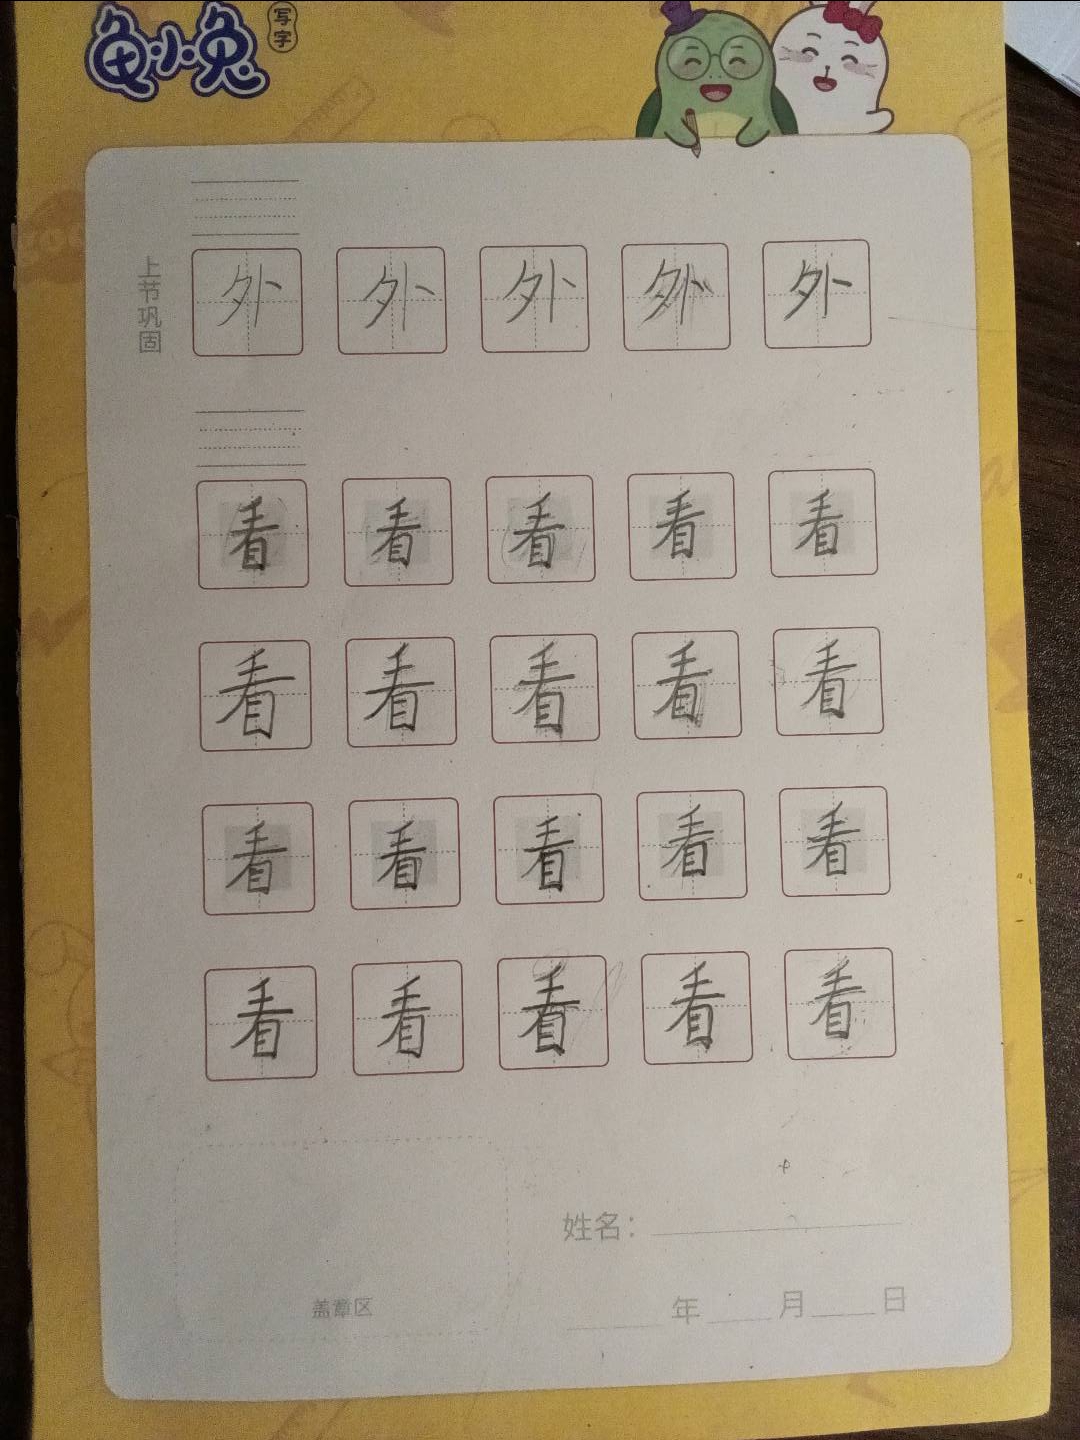 龟小兔
写字
上节巩固
外 外 外 外 外
看 看 看 看 看
看 看 看 看 看
看 看 看 看 看
看 看 看 看 看
姓名:
盖章区
年 月 日